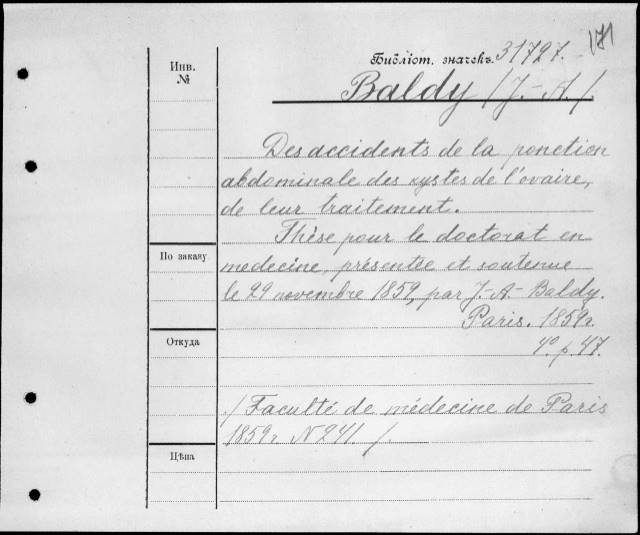 171
Инв.
№
Библіот. значекъ. 31727.
Baldy /J.-A./.
Des accidents de la ponction
abdominale des kystes de l'ovaire,
de leur traitement.
Thèse pour le doctorat en
По заказу
medecine, présentée et soutenue
le 29 novembre 1859, par J.-A- Baldy.
Paris. 1859г.
Откуда
4° p. 47.
/Faculté de médecine de Paris
1859г N 241. /.
Цѣна